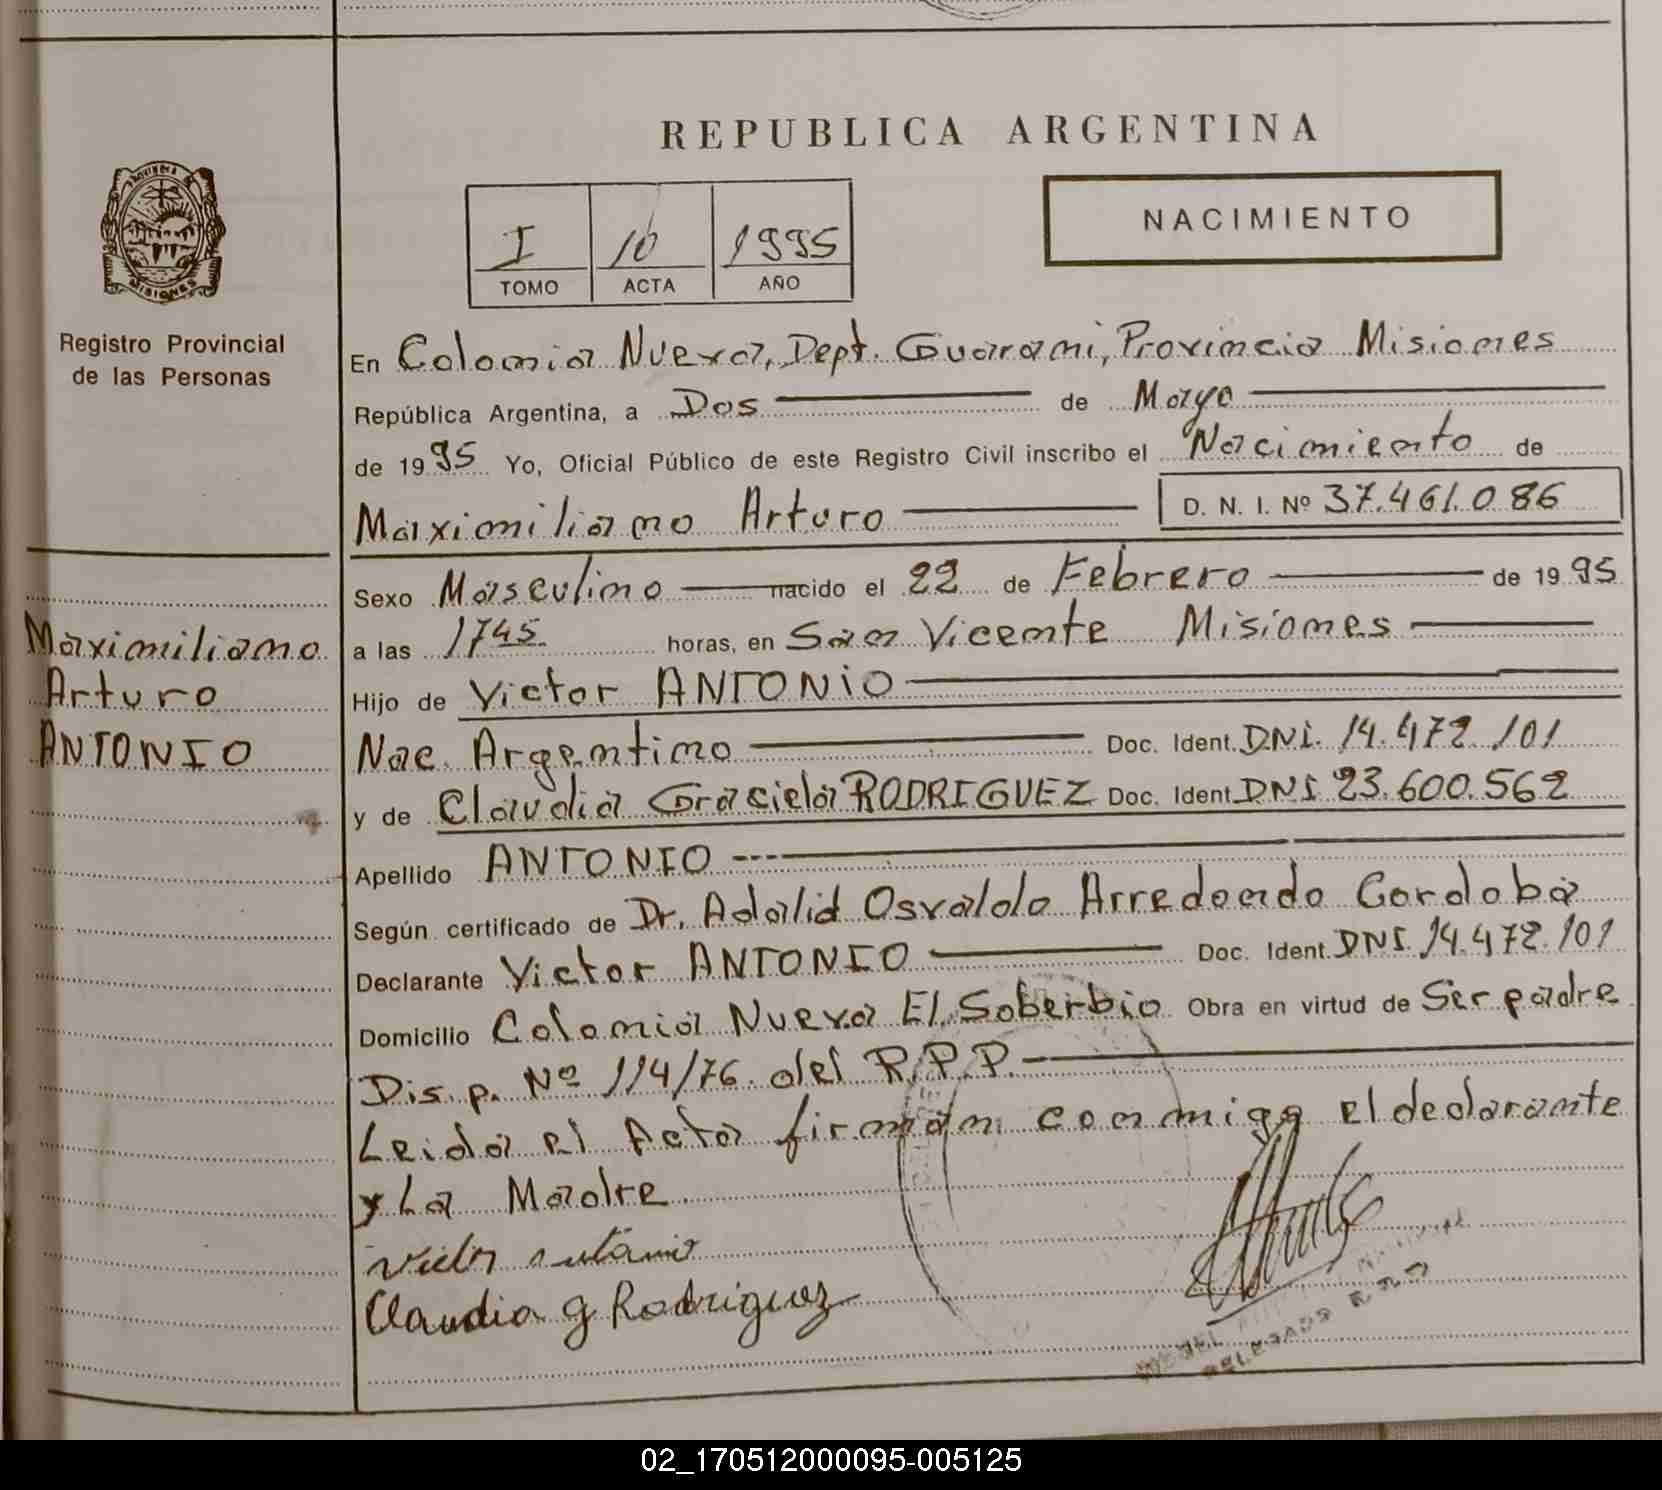 REPUBLICA ARGENTINA
NACIMIENTO
I 10 1995
TOMO ACTA AÑO
PROVINCIA DE
MISIONES
Registro Provincial
de las Personas
Maximiliano
Arturo
ANTONIO
En Colonia Nueva, Dept. Guarani, Provincia Misiones
República Argentina, a Dos de Mayo
de 1995 Yo, Oficial Público de este Registro Civil inscribo el Nacimiento de
Maximiliano Arturo D. N. I. Nº 37.461.086
Sexo Masculino nacido el 22 de Febrero de 1995
a las 1745 horas, en San Vicente Misiones
Hijo de Victor ANTONIO
Nac. Argentino Doc. Ident. DNI. 14.472.101
y de Claudia Graciela RODRIGUEZ Doc. Ident. DNI 23.600.562
Apellido ANTONIO
Según certificado de Dr. Adalid Osvaldo Arredondo Cordoba
Declarante Victor ANTONIO Doc. Ident. DNI. 14.472.101
Domicilio Colonia Nueva El Soberbio Obra en virtud de Ser padre
Disp. Nº 114/76 del R.P.P.
Leida el Acta firman conmigo el declarante
y La Madre
Victor Antonio
Claudia g Rodriguez
DELEGADO R.P.P.
02_170512000095-005125